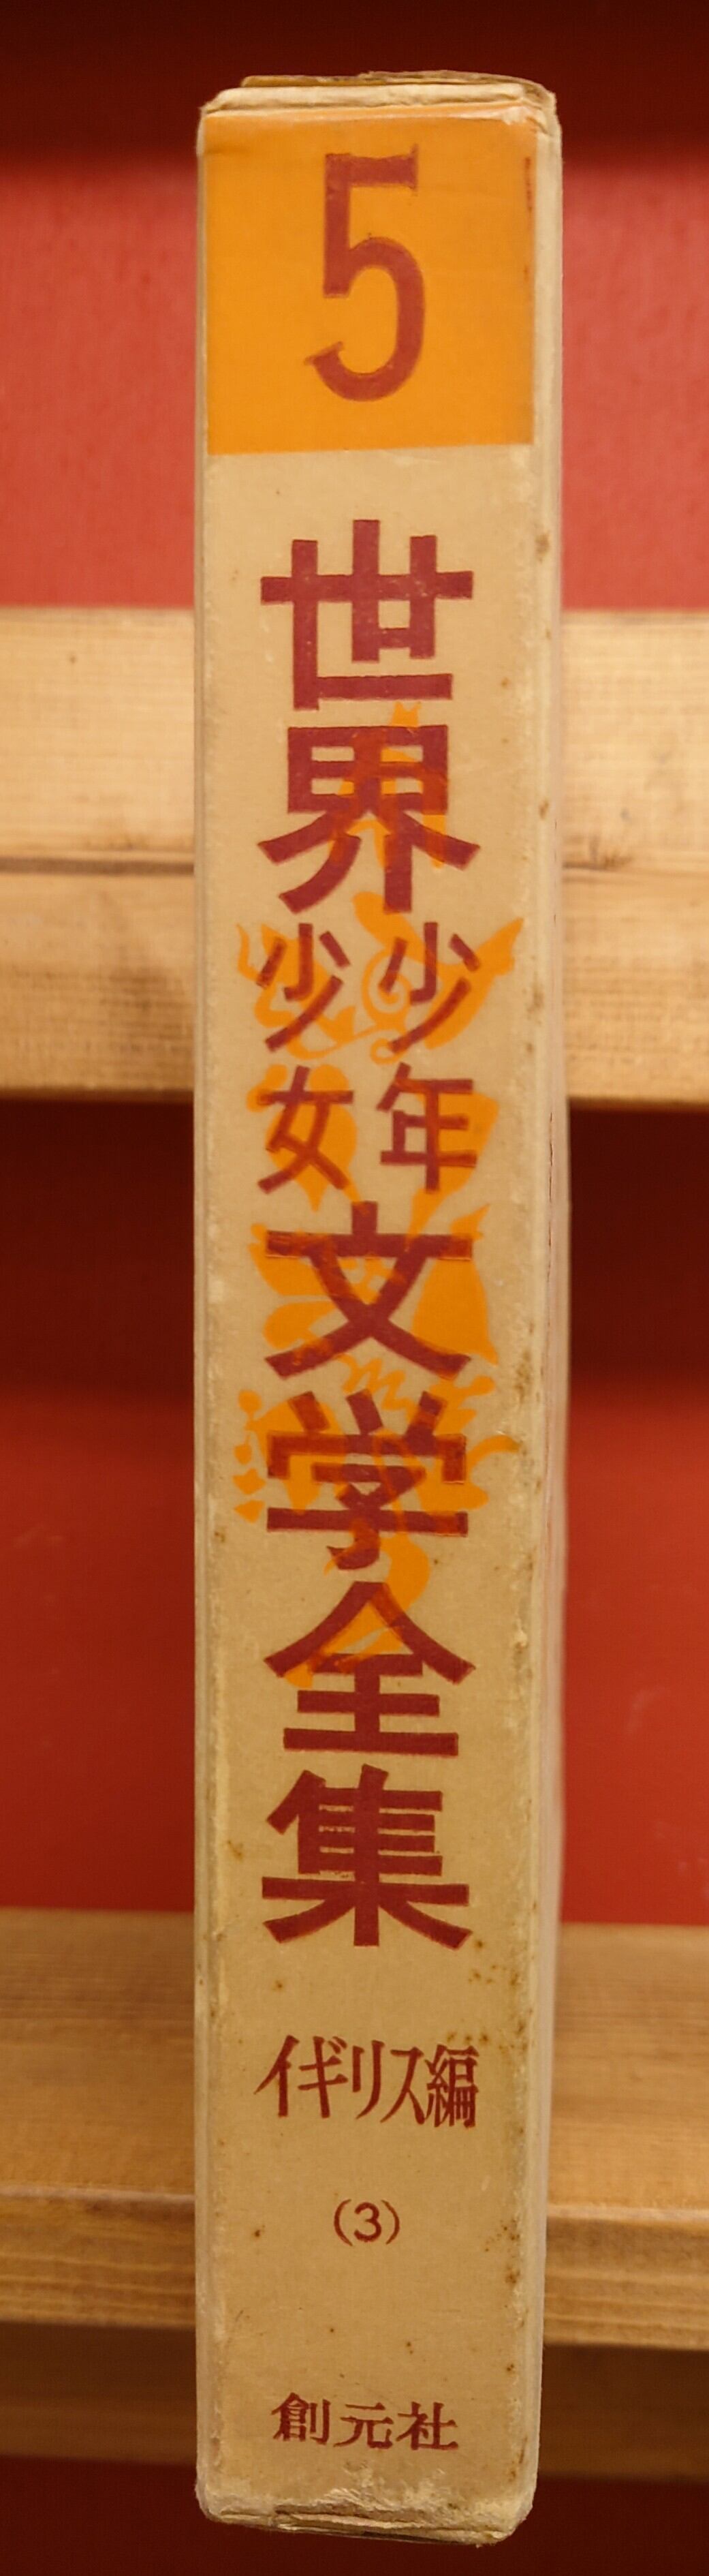 5
世界少年少女文学全集
イギリス編
(3)
創元社